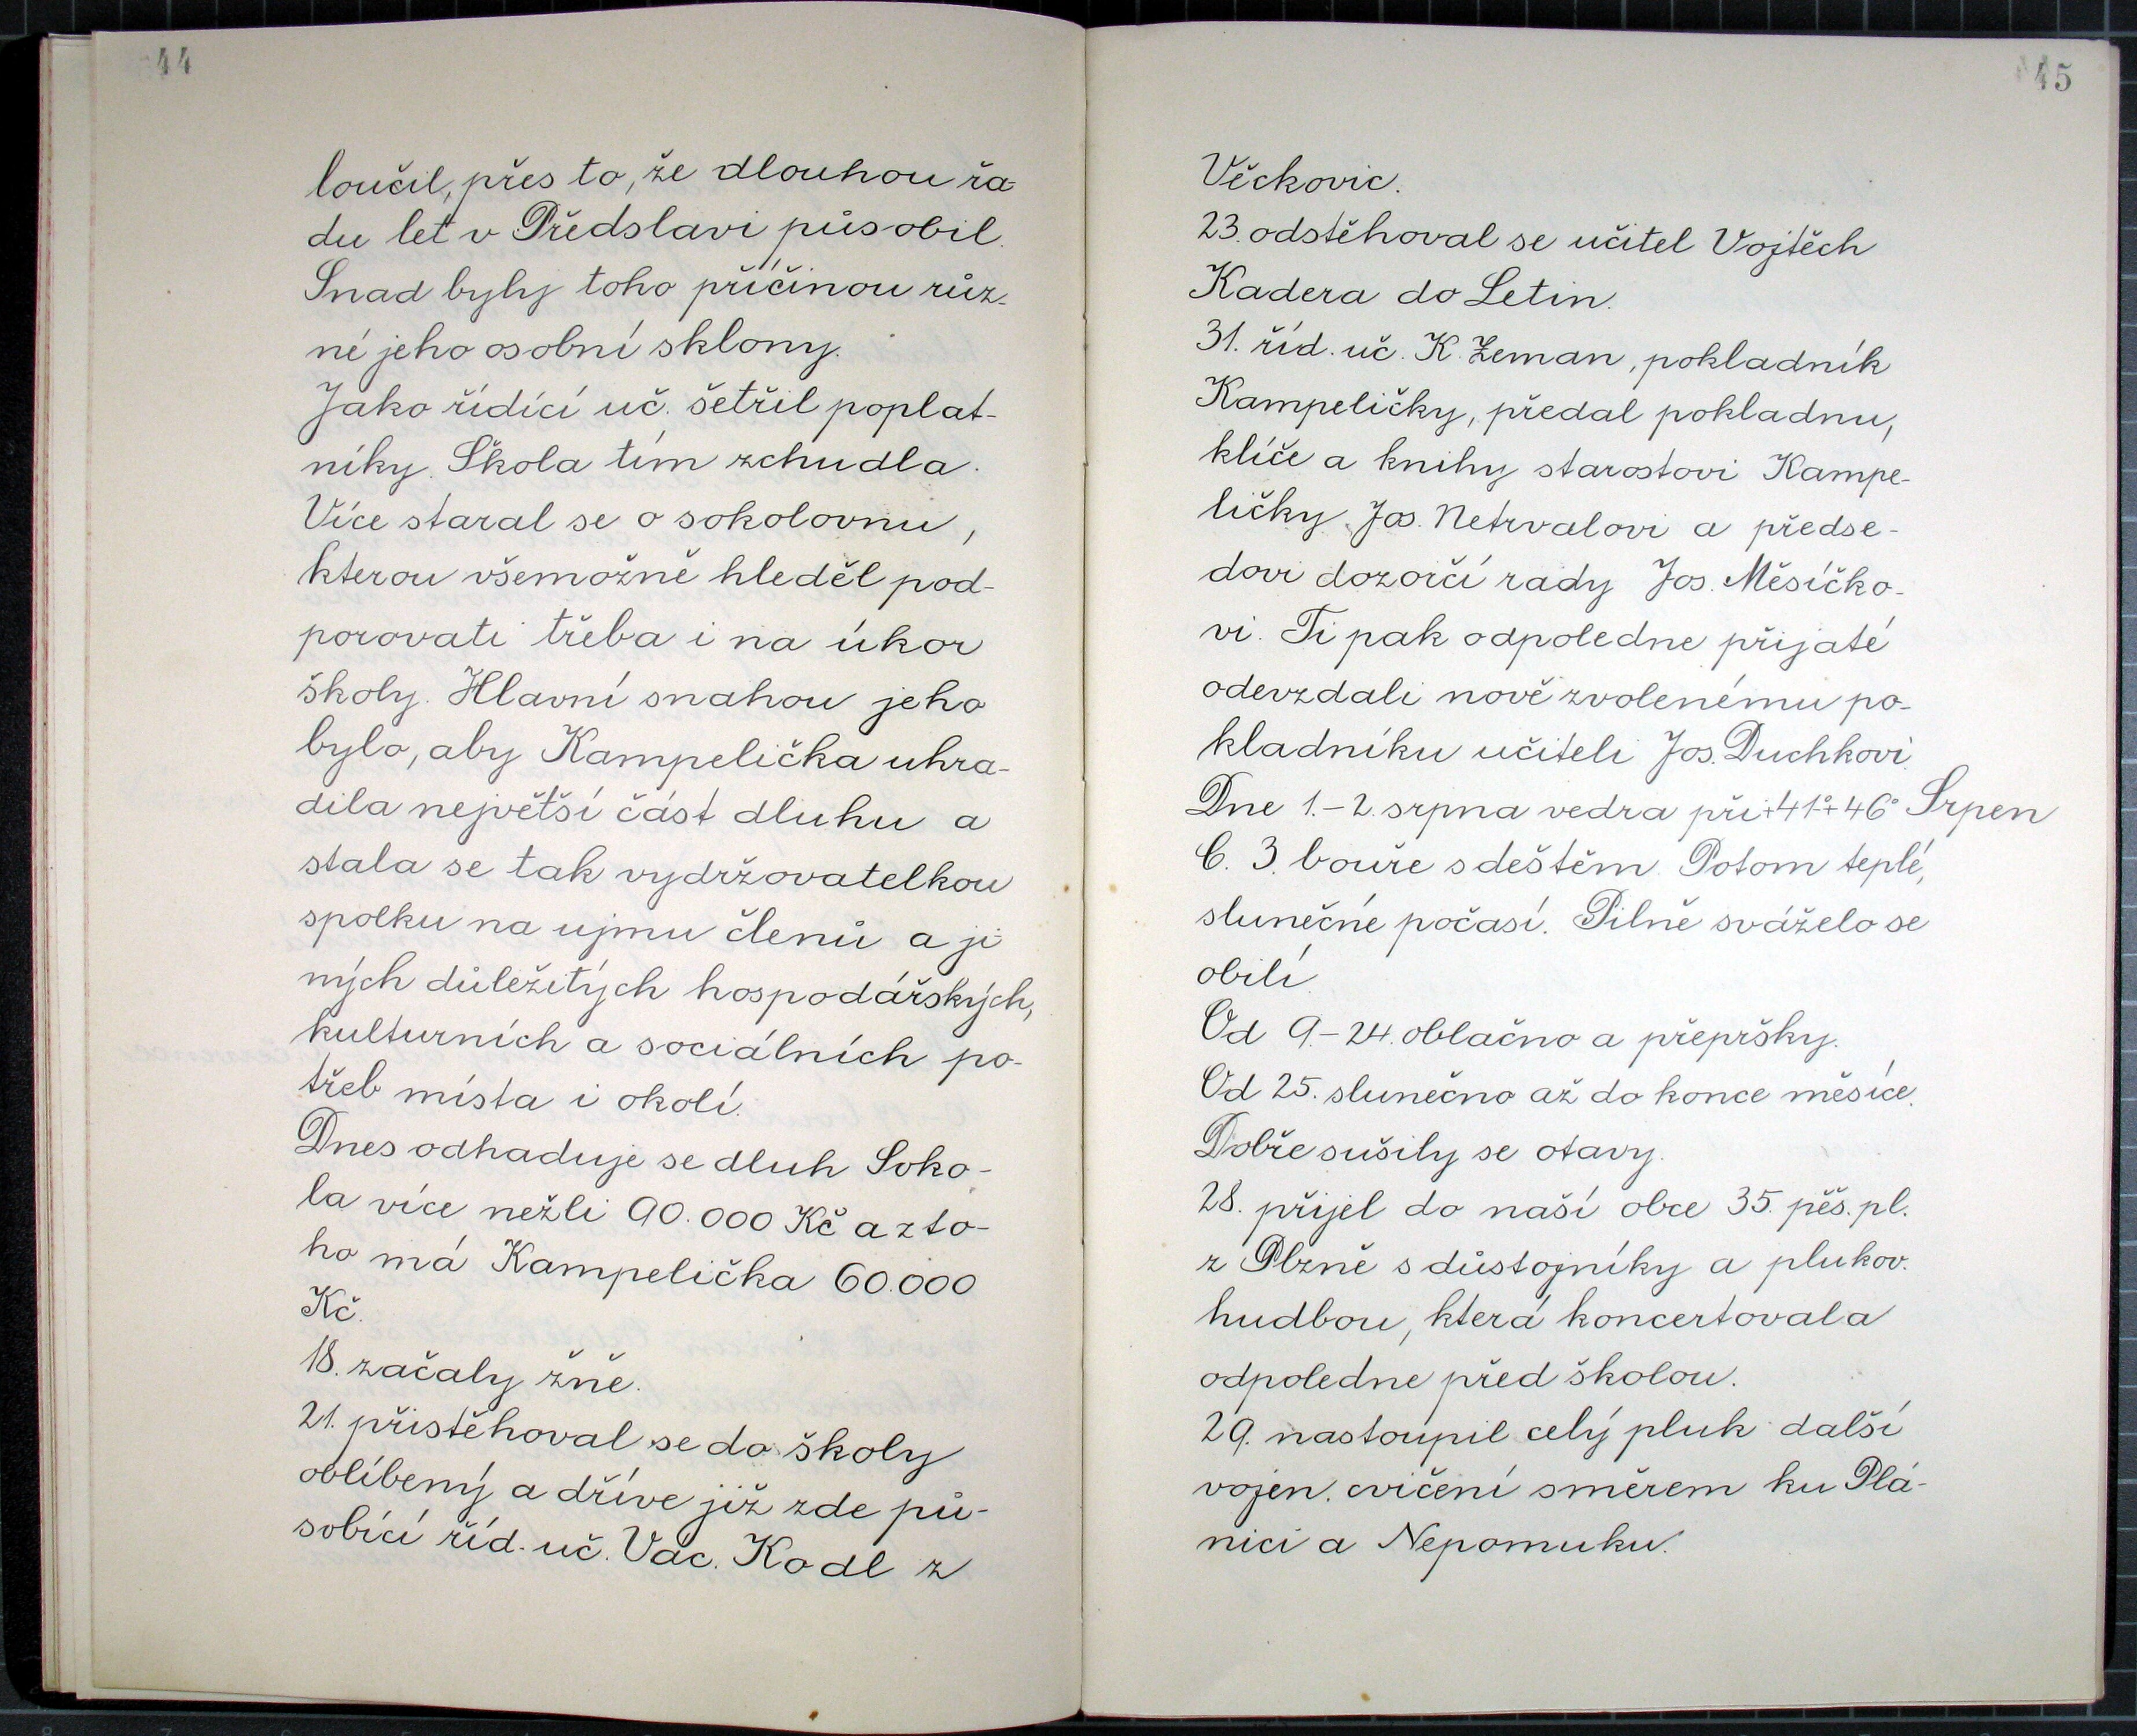 44
loučil, přes to, že dlouhou řa-
du let v Předslavi působil.
Snad byly toho příčinou růz-
né jeho osobní sklony.
Jako řídící uč. šetřil poplat-
níky. Škola tím zchudla.
Více staral se o sokolovnu,
kterou všemožně hleděl pod-
porovati třeba i na úkor
školy. Hlavní snahou jeho
bylo, aby Kampelička uhra-
dila největší část dluhu a
stala se tak vydržovatelkou
spolku na ujmu členů a ji-
ných důležitých hospodářských,
kulturních a sociálních po-
třeb místa i okolí.
Dnes odhaduje se dluh Soko-
la více nežli 90.000 Kč a z to-
ho má Kampelička 60.000
Kč.
18. začaly žně.
21. přistěhoval se do školy
oblíbený a dříve již zde pů-
sobící říd. uč. Vác. Kodl z
45
Věckovic.
23. odstěhoval se učitel Vojtěch
Kadera do Letin.
31. říd. uč. K. Zeman, pokladník
Kampeličky, předal pokladnu,
klíče a knihy starostovi Kampe-
ličky Jos. Netrvalovi a předse-
dovi dozorčí rady Jos. Měsíčko-
vi. Ti pak odpoledne přijaté
odevzdali nově zvolenému po-
kladníku učiteli Jos. Duchkovi.
Dne 1.-2. srpna vedra při +41°+46° Srpen
C. 3. bouře s deštěm. Potom teplé,
slunečné počasí. Pilně sváželo se
obilí.
Od 9.-24. oblačno a přepršky.
Od 25. slunečno až do konce měsíce.
Dobře sušily se otavy.
28. přijel do naší obce 35. pěš. pl.
z Plzně s důstojníky a plukov.
hudbou, která koncertovala
odpoledne před školou.
29. nastoupil celý pluk další
vojen. cvičení směrem ku Plá-
nici a Nepomuku.